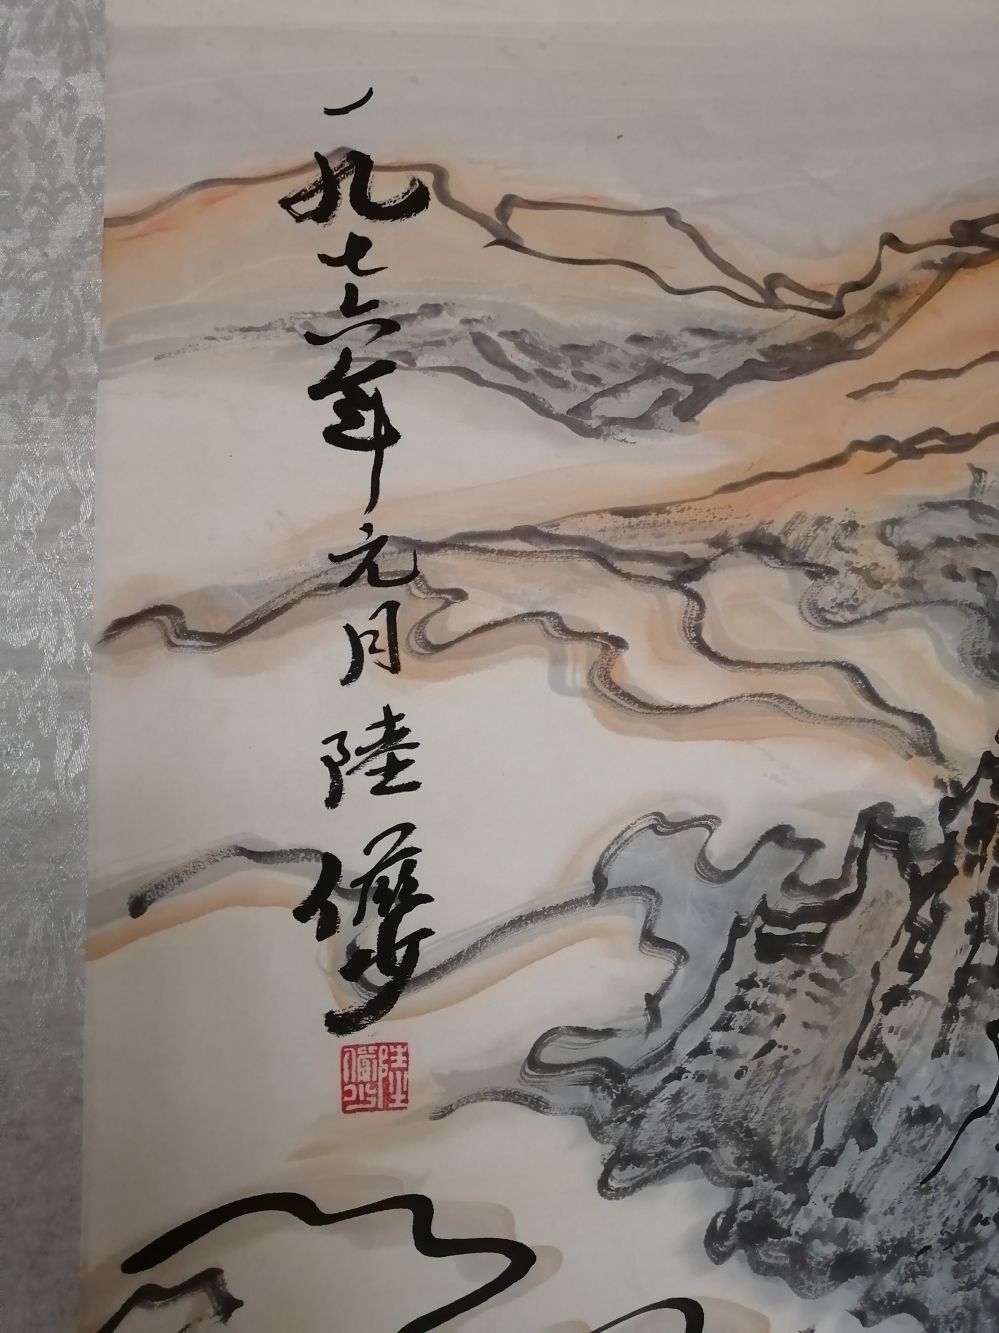 一九七六年元月陸儼少
陸儼少